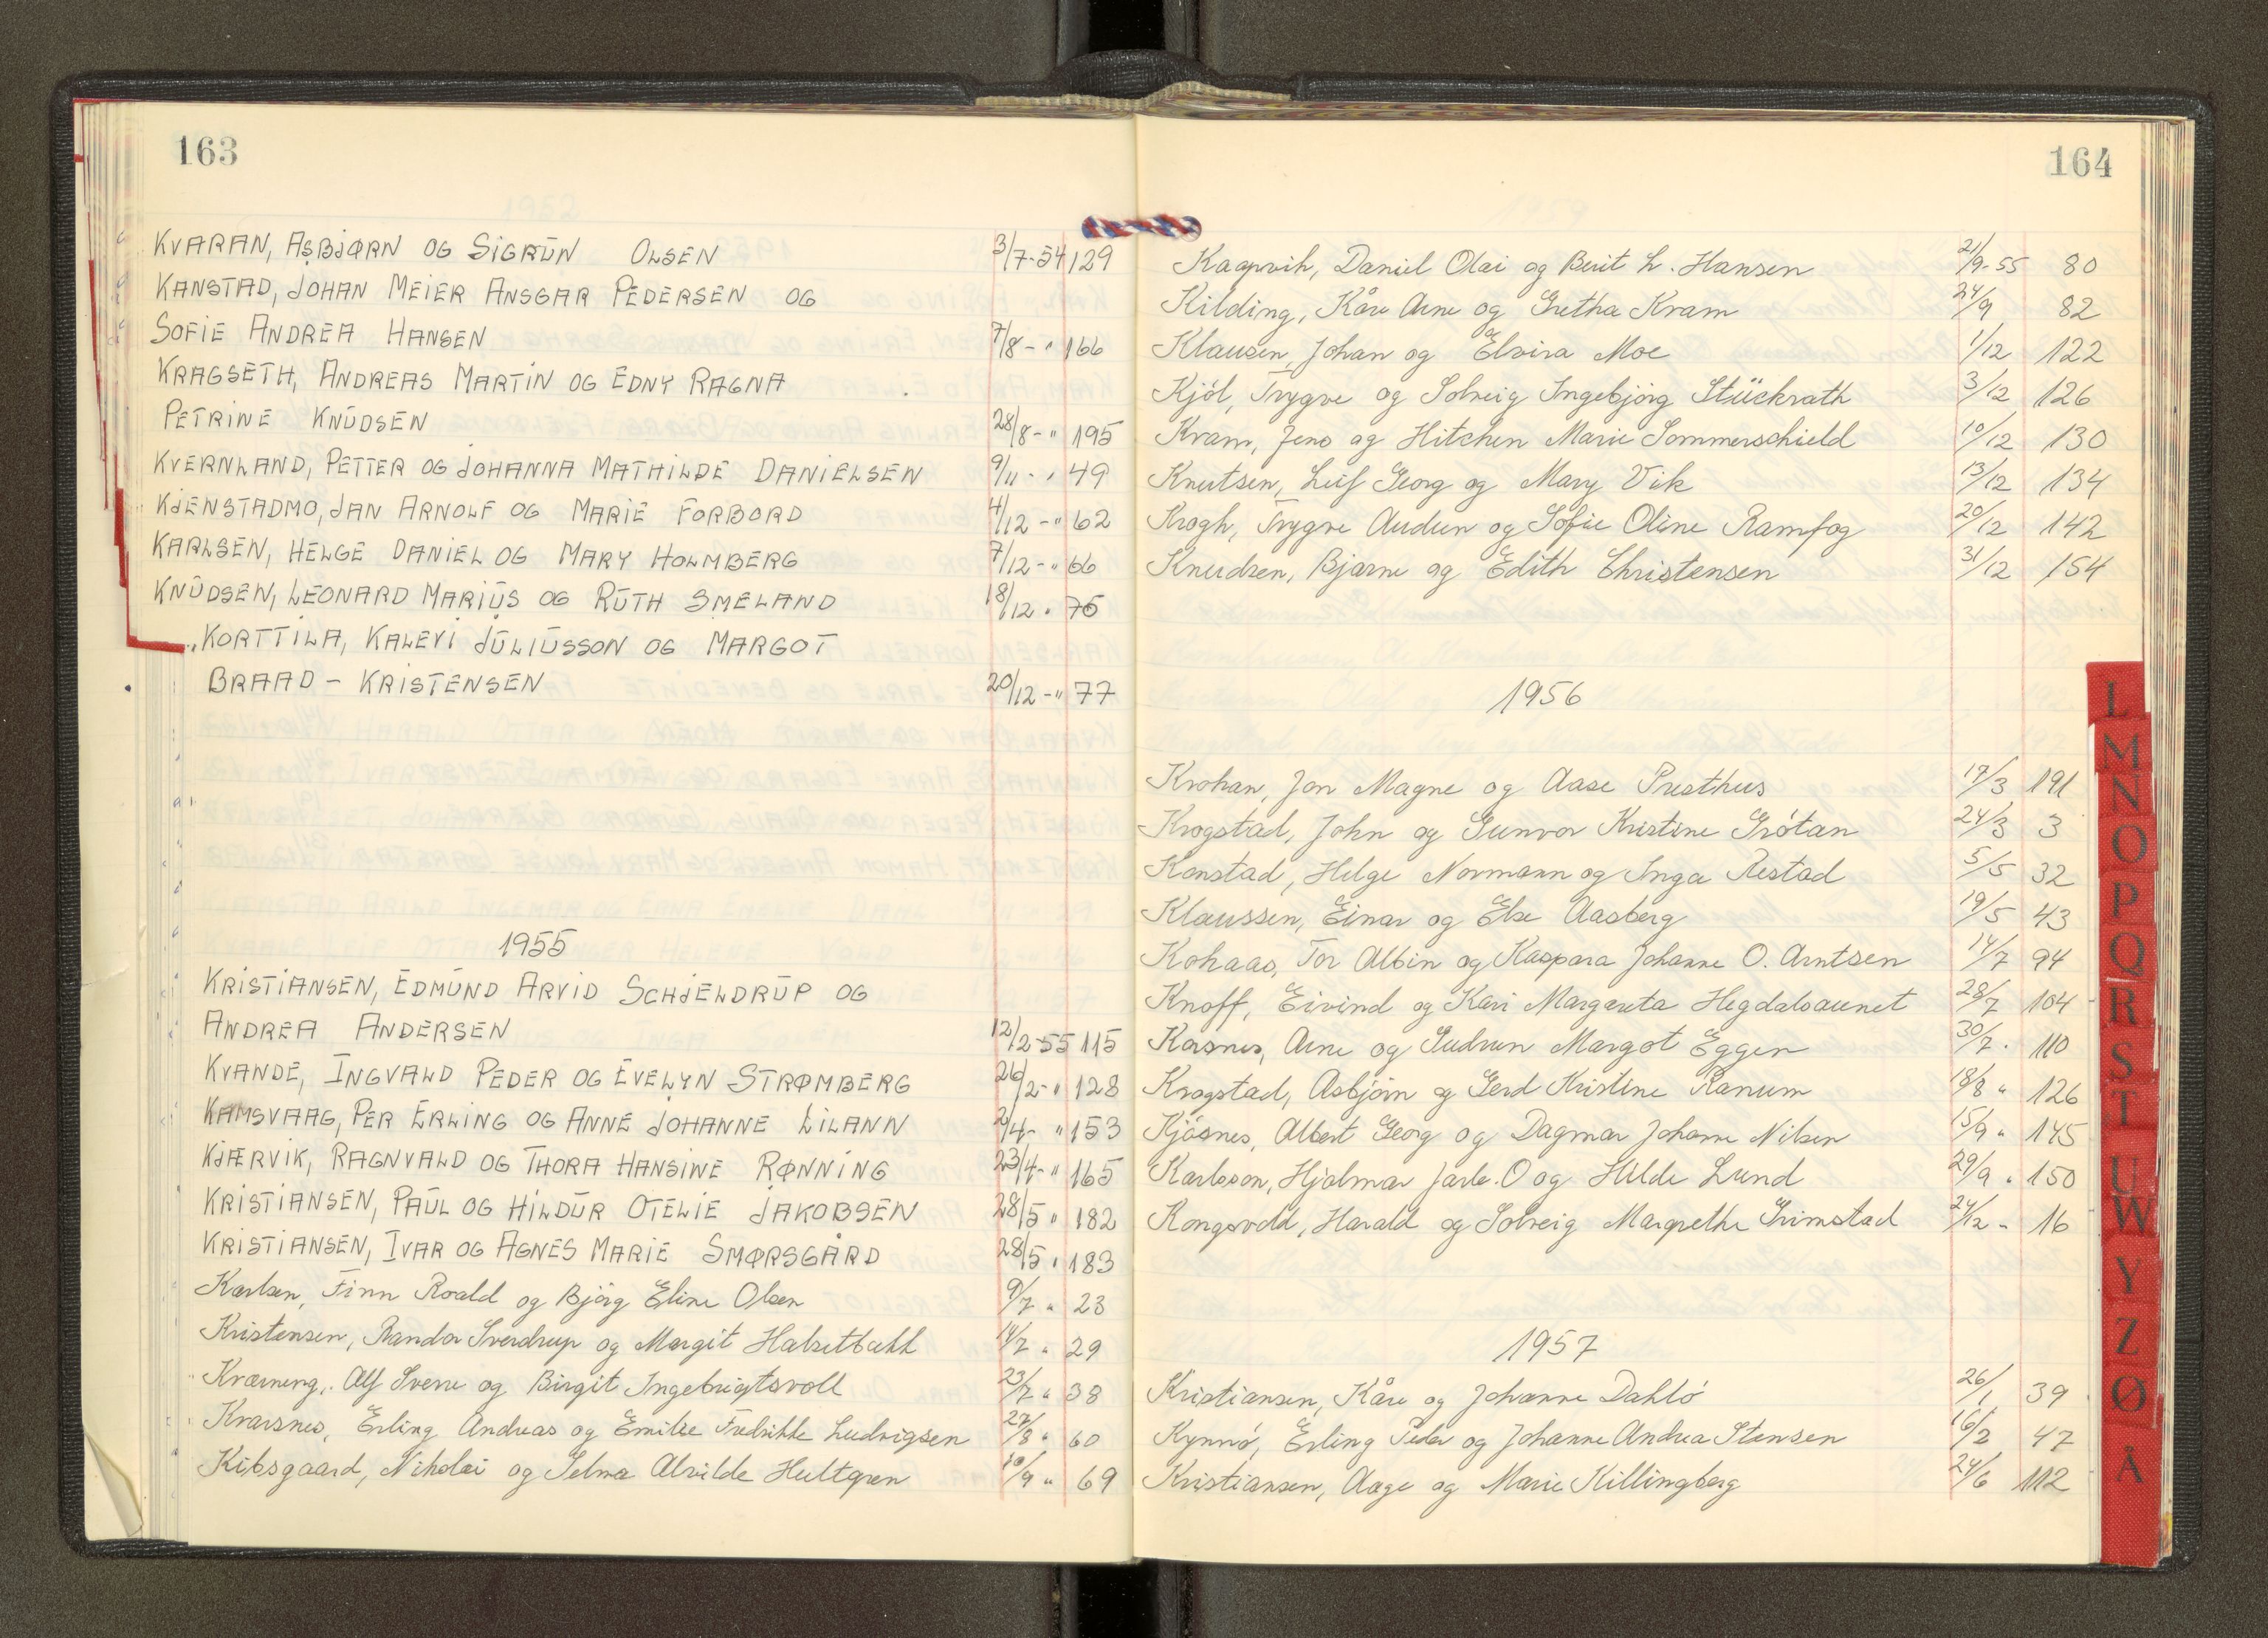 163
KVARAN, ASBJØRN OG SIGRŪN OLSEN 3/7-54 129
KANSTAD, JOHAN MEIER ANSGAR PEDERSEN OG
SOFIE ANDREA HANSEN 7/8-" 166
KRAGSETH, ANDREAS MARTIN OG EDNY RAGNA
PETRINE KNŪDSEN 28/8-" 195
KVERNLAND, PETTER OG JOHANNA MATHILDE DANIELSEN 9/11-" 49
KJENSTADMO, JAN ARNOLF OG MARIE FORBORD 4/12-" 62
KARLSEN, HELGE DANIEL OG MARY HOLMBERG 7/12-" 66
KNŪDSEN, LEONARD MARIŪS OG RŪTH SMELAND 18/12 " 75
KORTTILA, KALEVI JŪLIŪSSON OG MARGOT
BRAAD-KRISTENSEN 20/12-" 77
1955
KRISTIANSEN, EDMŪND ARVID SCHJELDRŪP OG
ANDREA ANDERSEN 12/2-55 115
KVANDE, INGVALD PEDER OG EVELYN STRØMBERG 26/2-" 128
KAMSVAAG, PER ERLING OG ANNE JOHANNE LILANN 2/4-" 153
KJÆRVIK, RAGNVALD OG THORA HANSINE RØNNING 23/4-" 165
KRISTIANSEN, PAŪL OG HILDŪR OTELIE JAKOBSEN 28/5 " 182
KRISTIANSEN, IVAR OG AGNES MARIE SMØRSGÅRD 28/5 " 183
Karlsen, Finn Roald og Bjørg Eline Olsen 9/7 " 23
Kristensen, Randor Sverdrup og Margit Halsetbakk 14/7 " 29
Kværneng, Alf Sverre og Birgit Ingebrigtsvoll 23/7 " 38
Kvarsnes, Erling Andreas og Emilie Fredrikke Ludvigsen 27/8 " 60
Kibsgaard, Nikolai og Selma Alvilde Hultgren 10/9 " 69
164
Kaapvik, Daniel Olai og Berit L. Hansen 21/9-55 80
Kilding, Kåre Arne og Gretha Kram 24/9 82
Klausen, Johan og Elvira Moe 1/12 122
Kjöl, Trygve og Solveig Ingebjörg Stückrath 3/12 126
Kram, Jens og Hitchen Marie Sommerschield 10/12 130
Knutsen, Leif Georg og Mary Vik 13/12 134
Krogh, Trygve Audun og Sofie Oline Ramfog 20/12 142
Knudsen, Bjarne og Edith Christensen 31/12 154
1956
Krohan, Jon Magne og Aase Presthus 17/3 191
Krogstad, John og Gunvor Kristine Grötan 24/3 3
Konstad, Helge Normann og Inga Restad 5/5 32
Klaussen, Einar og Else Aasberg 19/5 43
Kohaas, Tor Albin og Kaspara Johanne O. Arntsen 14/7 94
Knoff, Eivind og Kari Margareta Hegdalsaunet 28/7 104
Korsnes, Arne og Gudrun Margot Eggen 30/7 . 110
Krogstad, Asbjörn og Gerd Kristine Ranum 18/8 " 126
Kjösnes, Albert Georg og Dagmar Johanne Nilsen 15/9 " 145
Karlsson, Hjalmar Jarle. O og Hilde Lund 29/9 " 150
Kongsvold, Harald og Solveig Margrethe Grimstad 24/12 " 16
1957
Kristiansen, Kåre og Johanne Dahlö 26/1 39
Kynnö, Erling Peder og Johanne Andrea Stensen 16/2 47
Kristiansen, Aage og Marie Killingberg 24/6 112
L
M
N
O
P
Q
R
S
T
U
W
Y
Z
Ø
Å